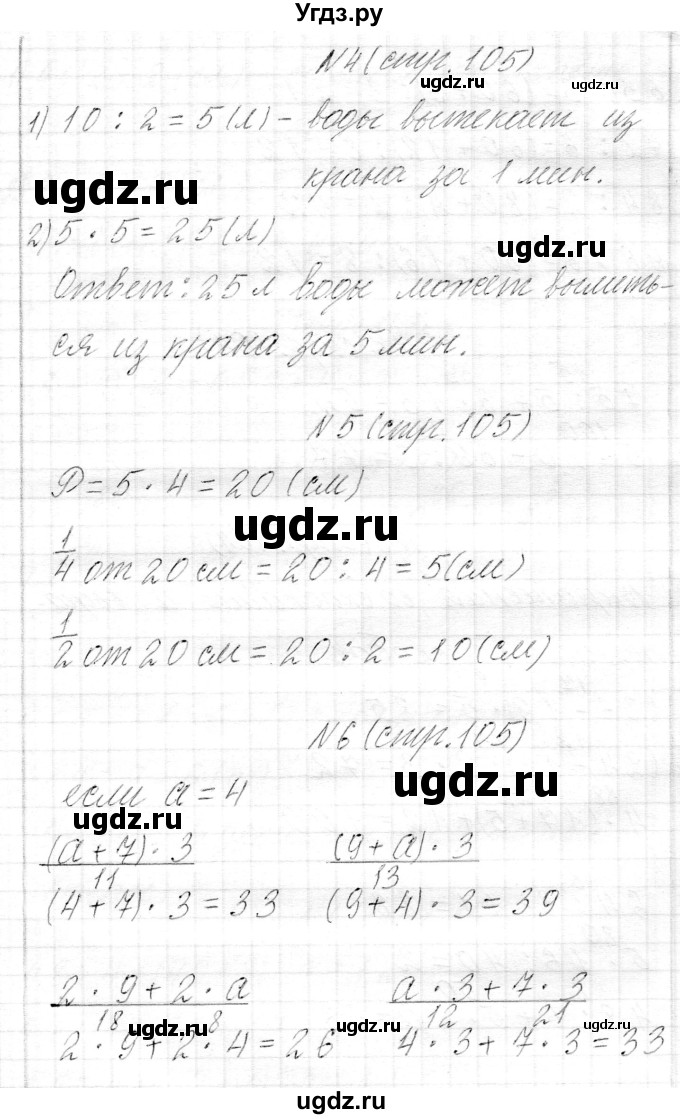 Угдз.ру
N4 (стр. 105)
1) 10 : 2 = 5 (л) - воды вытекает из
крана за 1 мин.
2) 5 · 5 = 25 (л)
Ответ: 25 л воды может вылить-
ся из крана за 5 мин.
N5 (стр. 105)
P = 5 · 4 = 20 (см)
1/4 от 20 см = 20 : 4 = 5 (см)
1/2 от 20 см = 20 : 2 = 10 (см)
N6 (стр. 105)
если a = 4
(a + 7) · 3 (9 + a) · 3
11 13
(4 + 7) · 3 = 33 (9 + 4) · 3 = 39
2 · 9 + 2 · a a · 3 + 7 · 3
18 8 12 21
2 · 9 + 2 · 4 = 26 4 · 3 + 7 · 3 = 33
ugdz.ru
ugdz.ru
ugdz.ru
ugdz.ru
ugdz.ru
ugdz.ru
ugdz.ru
ugdz.ru
ugdz.ru
ugdz.ru
ugdz.ru
ugdz.ru